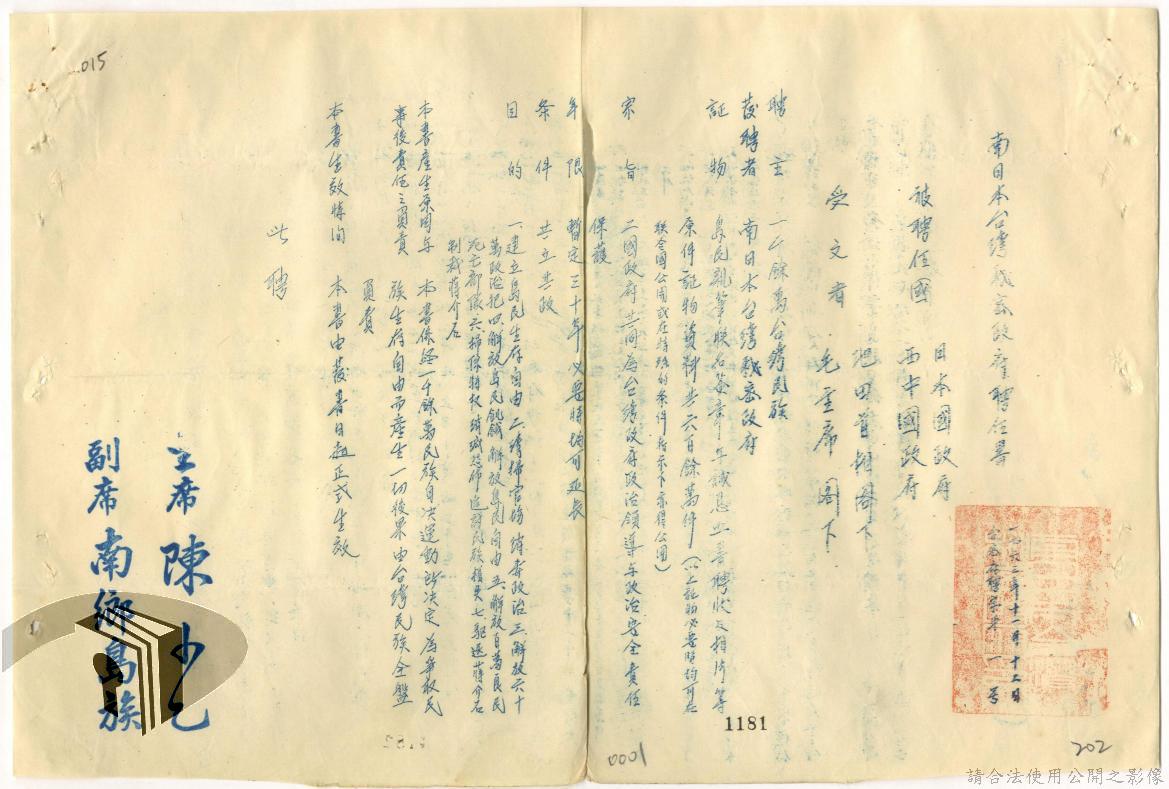 015
南日本台湾秘密政府聘任署
被聘任國 日本國政府
西中國政府
池田首相閣下
受文者 毛主席閣下
聘主 一千餘萬台湾民族
發聘者 南日本台湾秘密政府
証物 島民親筆联名簽章年誠恳血書聘狀及相片等
原件証物資料共六百餘萬件(以上証物必要時均可在
联合國公開或在特殊的条件存不下亦得公開)
宗旨 二國政府共同為台湾政府政治領導与政治安全責任
保護
年限 暫定三十年必要時均可延長
条件 共立共政
目的 一、建立島民生存自由二、清掃官僚消毒政治三、解放六十
萬政治犯四、解放島民飢餓解放島民自由五、解放百萬良民
死亡部隊六、掃除特权消滅恐怖追討民族損失七、駆逐蒋介石
制裁蒋介石
本書産生原因与 本書係経一千餘萬民族自决運動所决定為爭取民
事後責任之負責 族生存自由而産生一切後果由台湾民族全盤
負責
本書生效時间 本書由發書日起正式生效
此聘
主席 陳少乞
副席 南鄉島族
一九六三年十一月十二日
第一号
1181
0001
202
請合法使用公開之影像